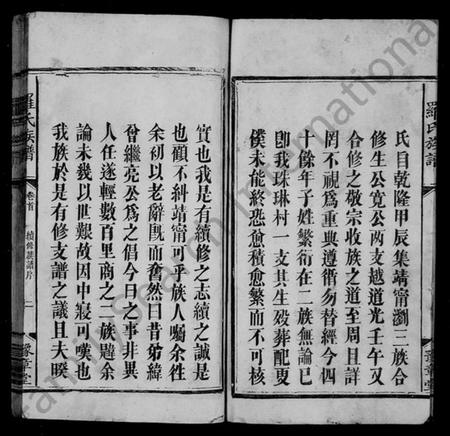 羅氏族譜
氏目乾隆甲辰集靖甯瀏三族合
修生公寬公兩支越道光壬午又
合修之敬宗收族之道至周且詳
罔不視爲重典遵循勿替經今四
十餘年子姓繁衍在二族無論已
卽我珠琳村一支其生殁葬配更
僕未能終恐愈積愈繁而不可核
豫章堂
實也我是有續修之志續之誠是
也顧不糾靖甯可乎族人囑余徃
余初以老辭旣而奮然曰昔弟緯
曾繼亮公爲之倡今日之事非異
人任遂輕數百里商之二族題余
論未幾以世艱故因中寢可嘆也
我族於是有修支譜之議且夫睽
羅氏族譜
卷首
續修譜牒片
二
豫章堂
FamilySearch International